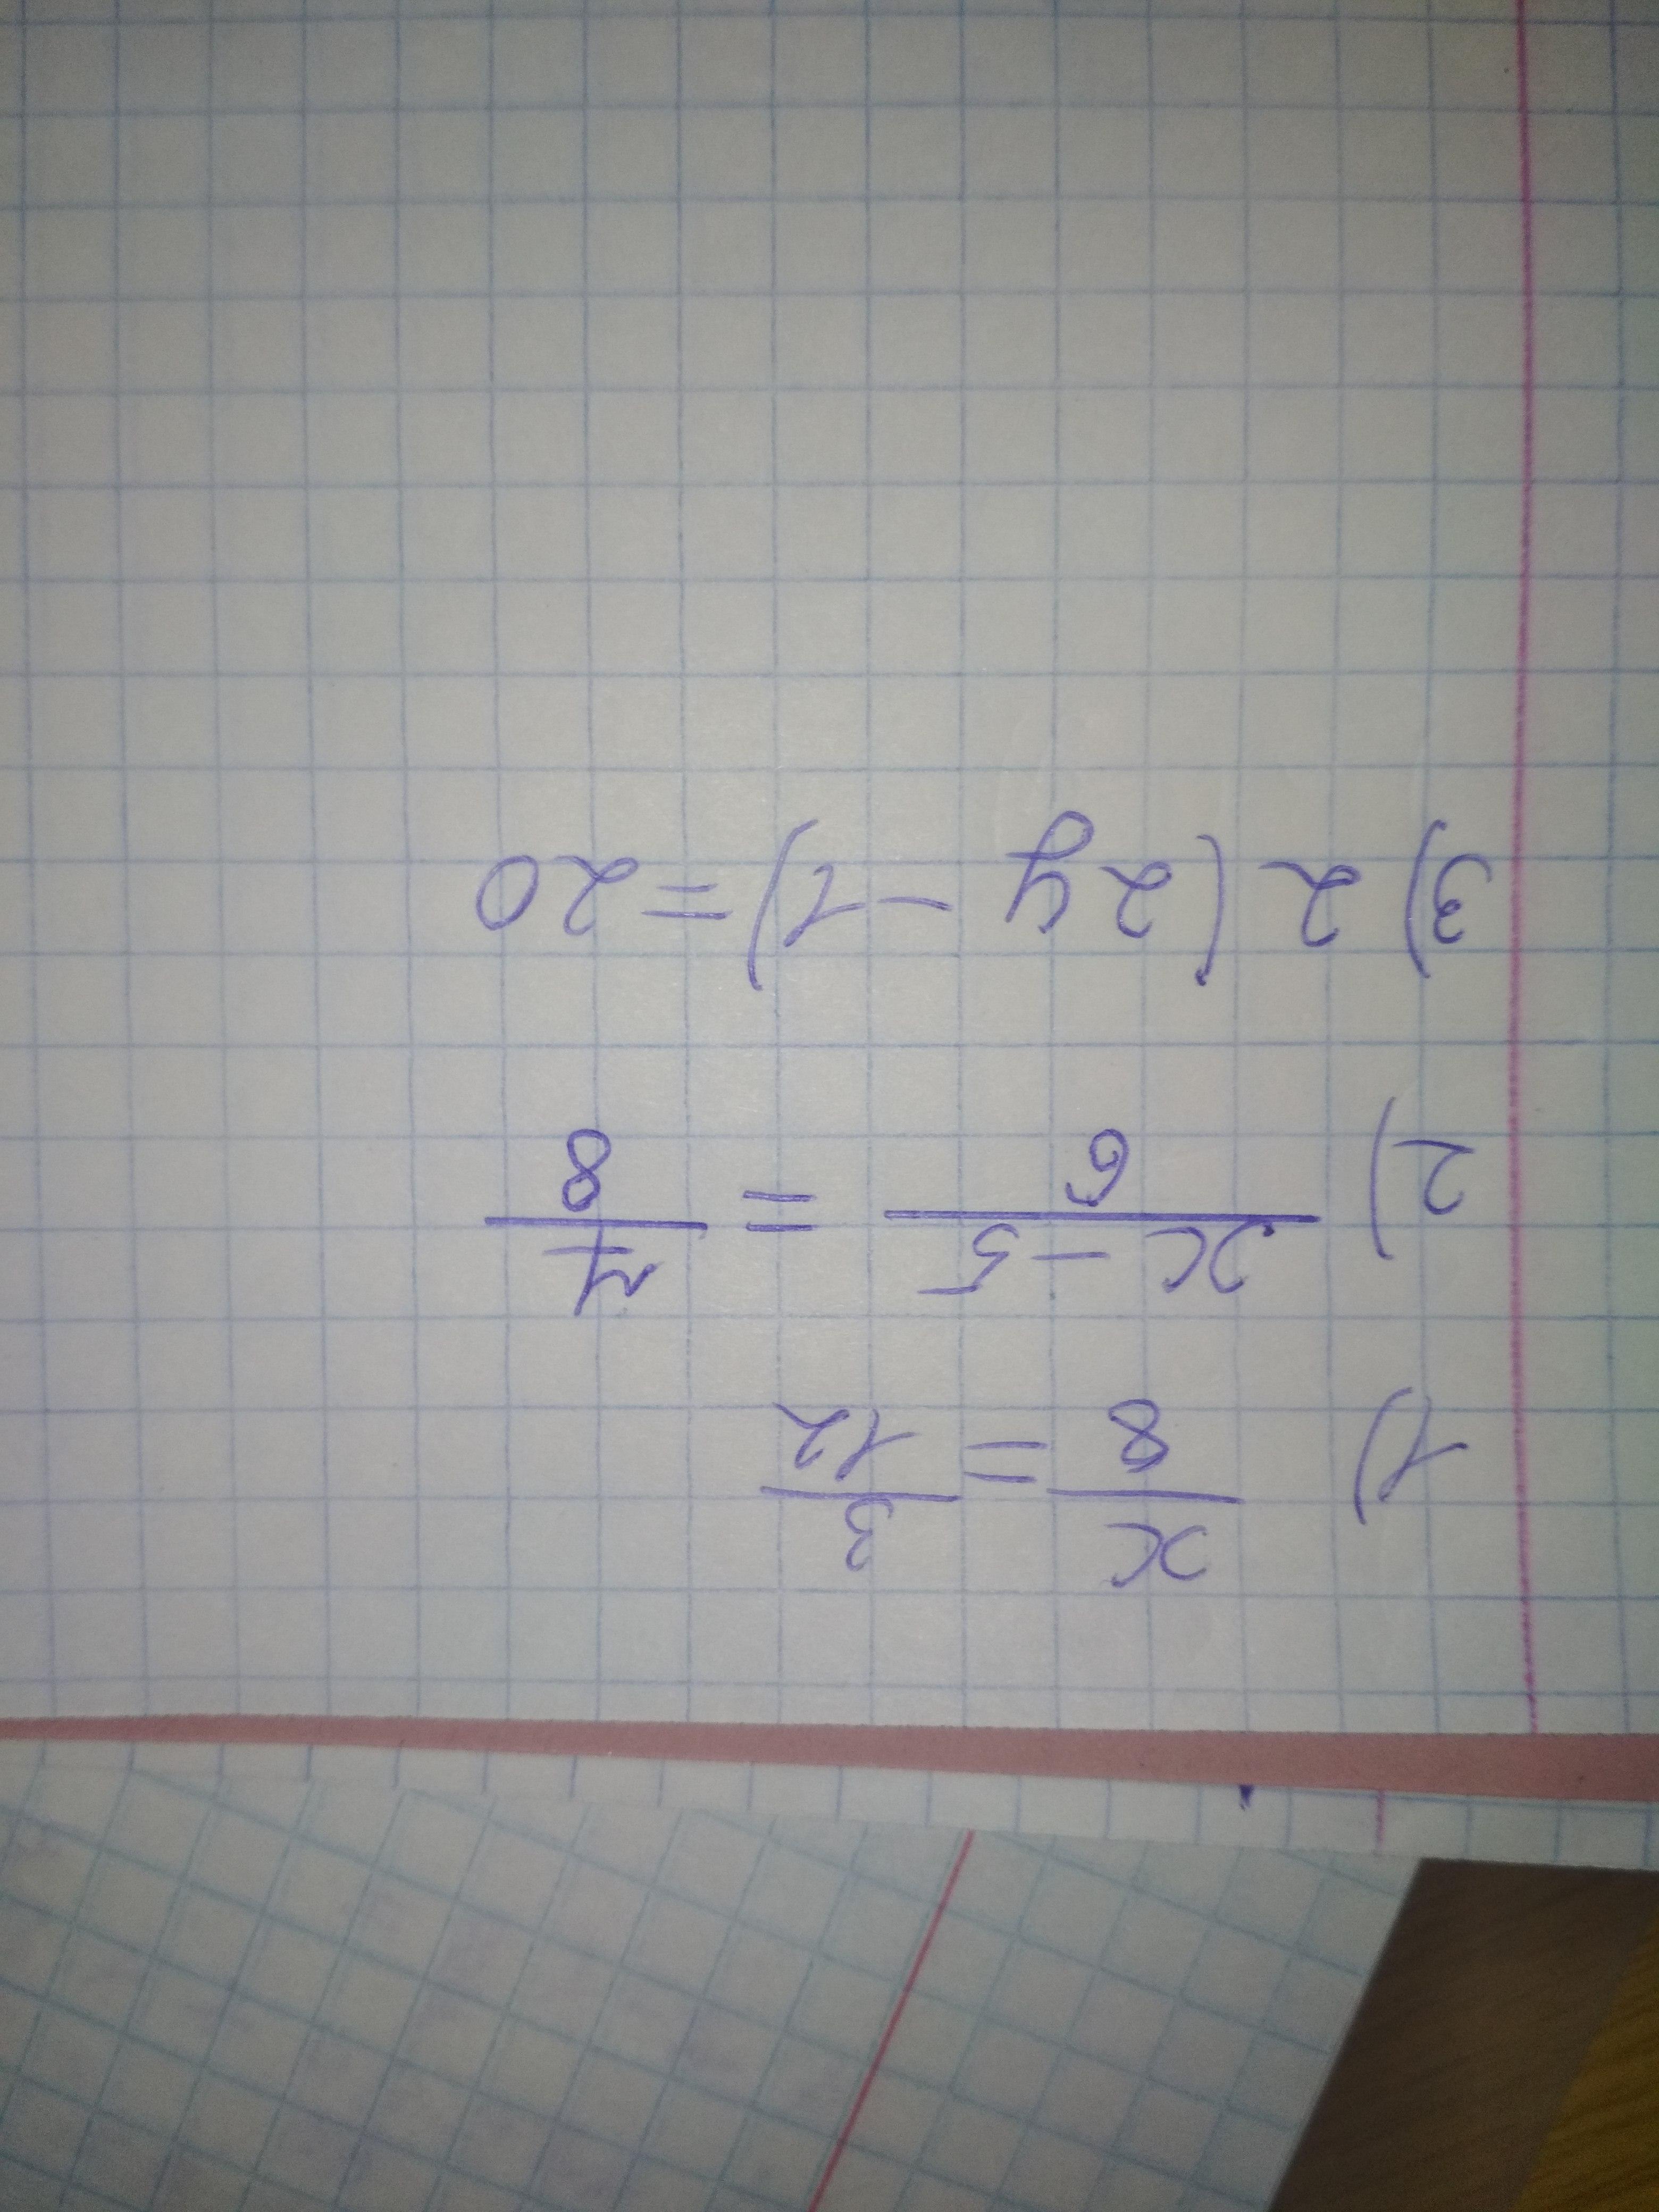 1) x/8 = 3/12
2) x-5/6 = 7/8
3) 2(2y-1)=20